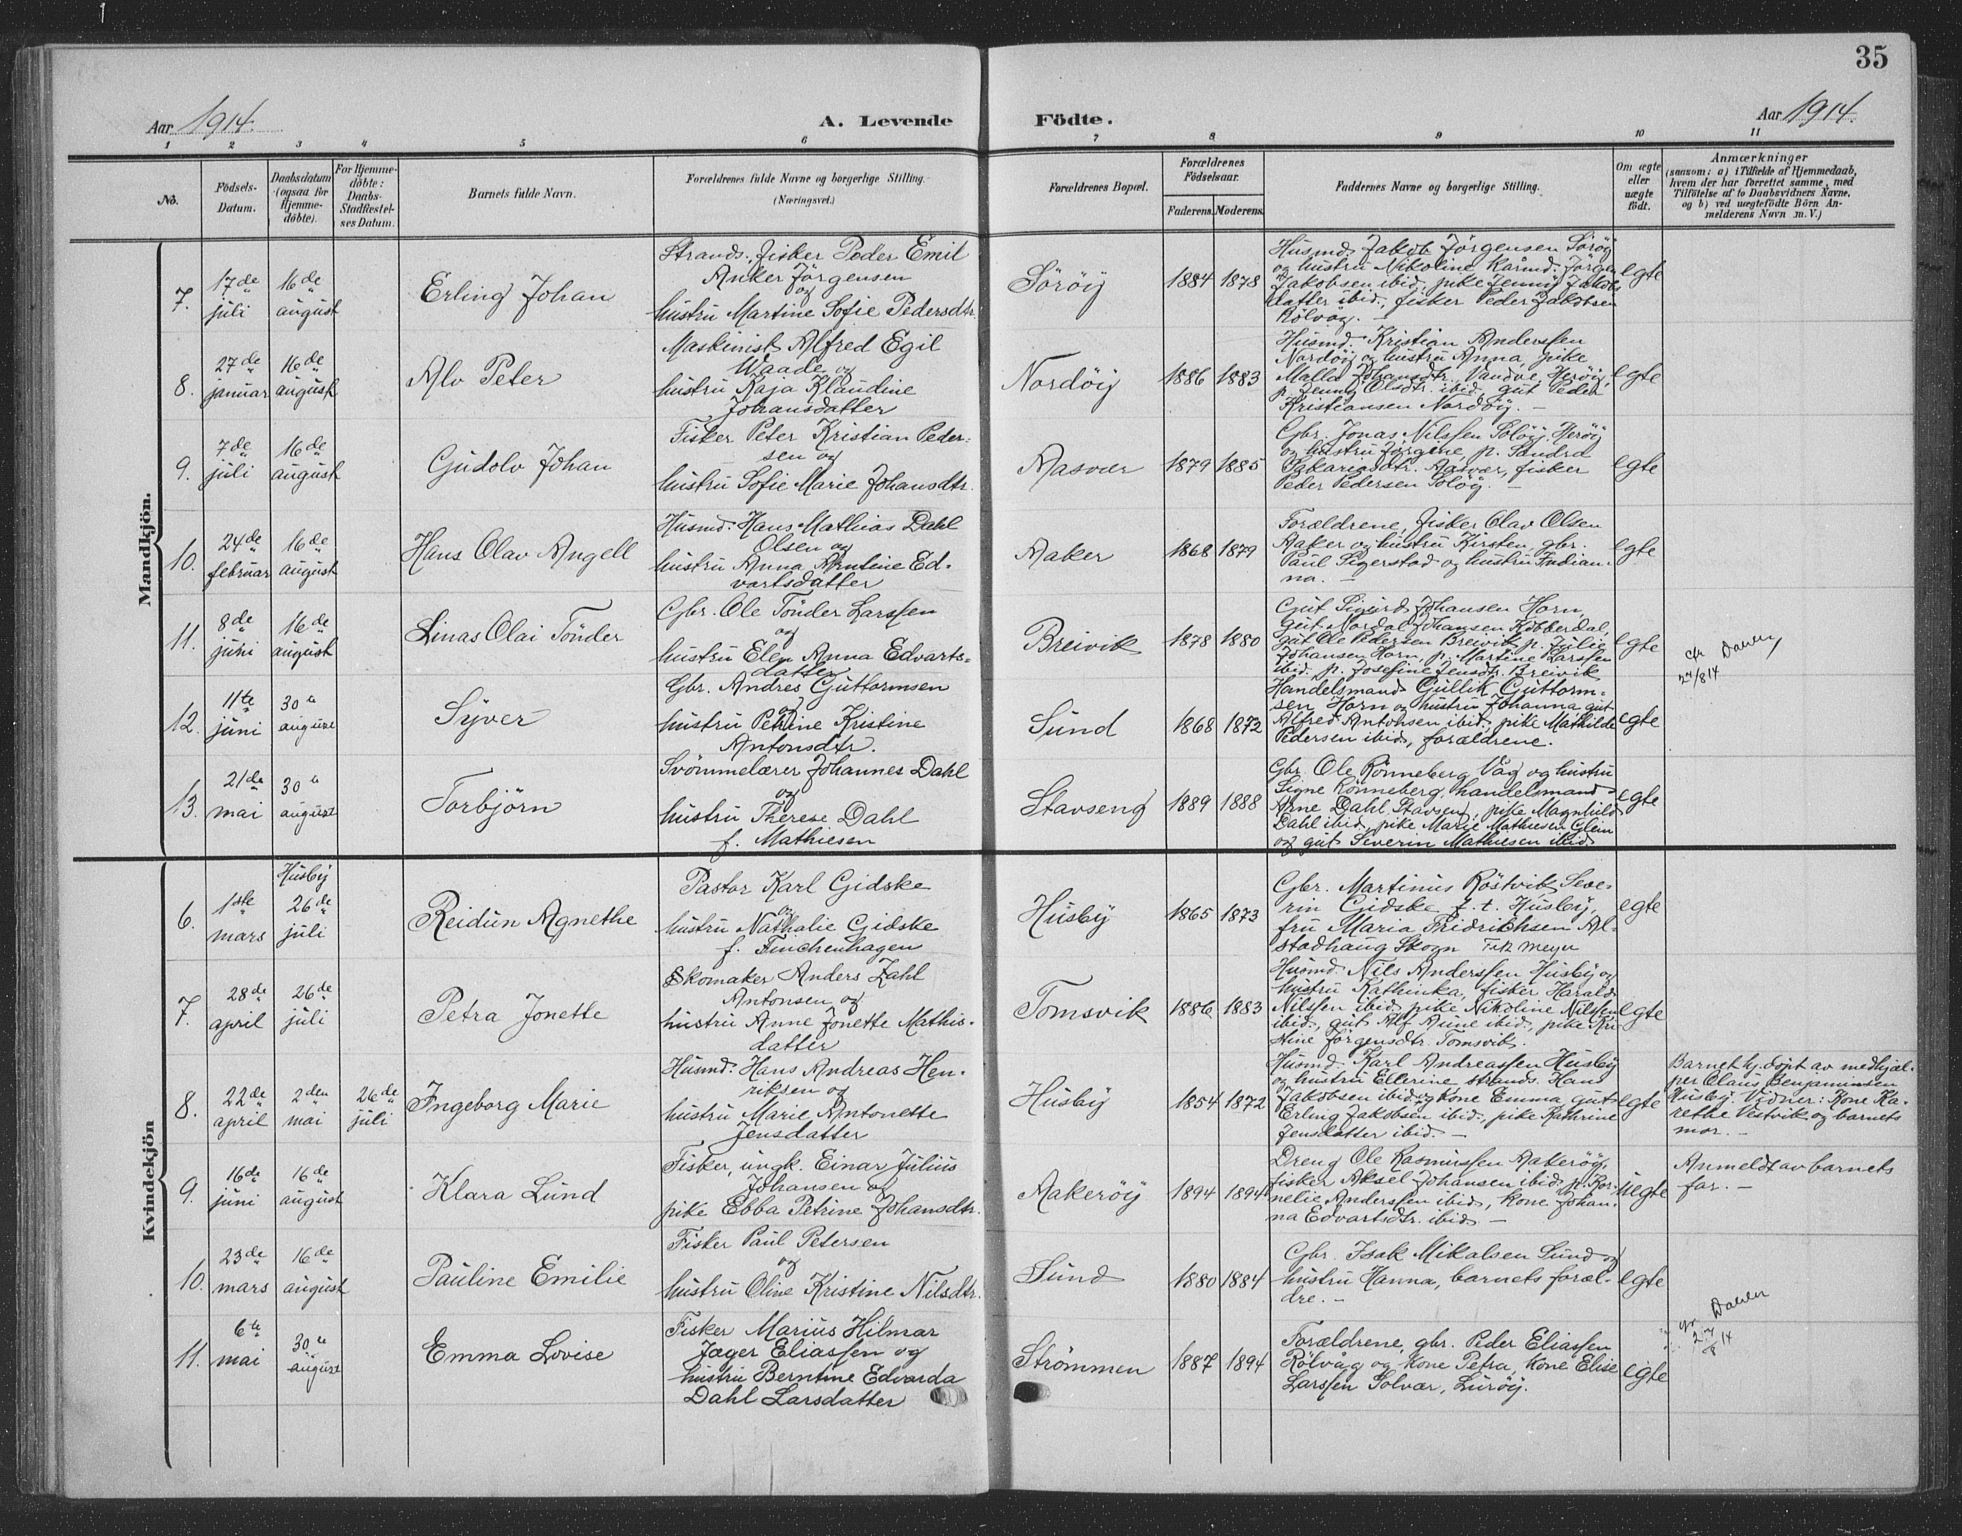 35
Aar 1914.
A. Levende
Födte.
Aar 1914.
1 2 3 4 5 6 7 8 9 10 11
No.
Födsels-
Datum.
Daabsdatum
(ogsaa for
Hjemme-
döbte).
For Hjemme-
döbte:
Daabs-
Stadfæstel-
ses Datum.
Barnets fulde Navn.
Forældrenes fulde Navne og borgerlige Stilling
(Næringsvei.)
Forældrenes Bopæl.
Forældrenes
Födselsaar.
Faderens. Moderens.
Faddernes Navne og borgerlige Stilling.
Om ægte
eller
uægte
födt.
Anmærkninger
(saasom: a) i Tilfælde af Hjemmedaab,
hvem der har forrettet samme, med
Tilföielse af to Daabsvidners Navne,
og b) ved uægtefödte Börn An-
melderens Navn m. V.)
Mandkjön.
7.
17de
juli
16de
august
Erling Johan
Strands. fisker Peder Emil
Anker Jörgensen
og
hustru Martine Sofie Pedersdtr.
Söröy
1884 1878
Husmd. Jakob Jörgensen Söröy
og hustru Nikoline Kårmd. Jörgen
Jakobsen ibid, pike Jenny Jakobs
datter ibid, fisker Peder Jakobsen
Rölvåg. -
egte
8.
27de
januar
16de
august
Alv Peter
Maskinist Alfred Egil
Waade og
hustru Kaja Klaudine
Johansdatter
Nordöy
1886 1883
Husmd. Kristian Anderssen
Nordöy og hustru Anna, pike
Malla Johansdtr. Vandve, Heröy,
p. Jenny Olsdtr. ibid, gut Peder
Kristiansen Nordöy. -
egte
9.
7de
juli
16de
august
Gudolv Johan
Fisker Peter Kristian Peder-
sen og
hustru Sofie Marie Johansdtr.
Aasvær
1879 1885
Gbr. Jonas Nilssen Solöy, Heröy
og hustru Jörgine, p. Sandra
Sakariasdtr. Aasvær, fisker
Peder Pedersen Solöy. -
egte
10.
24de
februar
16de
august
Hans Olav Angell
Husmd. Hans Mathias Dahl
Olsen og
hustru Anna Arntine Ed-
vartsdatter
Aaker
1868 1879
Forældrene, fisker Olav Olsen
Aaker og hustru Kirsten, gbr.
Paul Sigerstad og hustru Indian-
na. -
egte
11.
8de
juni
16de
august
Linas Olai Tönder
Gbr. Ole Tönder Larssen
og
hustru Elen Anna Edvarts-
datter
Breivik
1878 1880
Gut Sigurd Johansen Horn,
gut Nordal Johansen Kobberdal,
gut Ole Pedersen Breivik, p. Julie
Johansen Horn, p. Martine Larssen
ibid. p. Josefine Jensdtr. Breivik
egte
24/8 14
12.
11te
juni
30te
august
Syver
Gbr. Andres Guttormsen
og
hustru Petrine Kristine
Antonsdtr.
Sund
1868 1872
Handelsmand Gullik Guttorm-
sen Horn og hustru Johanna gut
Alfred Antonsen ibid, pike Mathilde
Pedersen ibid, forældrene.
egte
13.
21de
mai
30te
august
Torbjörn
Svömmelærer Johannes Dahl
og
hustru Therese Dahl
f. Mathiesen
Stavseng
1889 1888
Gbr. Ole Rönneberg Våg og hustru
Signe Rönneberg, handelsmand
Arne Dahl, Stavseng, pike Magnhild
Dahl ibid, pike Marie Mathiesen Glein
og gut Severin Mathiesen ibid
egte
Kvindekjön
6.
1ste
mars
Husby
26de
juli
Reidun Agnethe
Pastor Karl Gidske
og
hustru Nathalie Gidske
f. Finchenhagen
Husby
1865 1873
Gbr. Martinus Röstvik, Seve-
rin Gidske f. t. Husby,
fru Maria Fridrichsen Al-
stadhaug Skogn Frk Meyer
egte
7.
28de
april
26de
juli
Petra Jonette
Skomaker Anders Zahl
Antonsen og
hustru Anne Jonette Mathis-
datter
Tomsvik
1886 1883
Husmd. Nils Anderssen Husby og
hustru Kathinka, fisker Harald
Nilssen ibid, pike Nikoline Nilssen
ibid, gut Alf Aune ibid, pike Kri-
stine Jörgensdtr. Tomsvik.
egte
8.
22de
april
2den
mai
26de
juli
Ingeborg Marie
Husmd. Hans Andreas Hen-
riksen og
hustru Marie Antonette
Jensdatter
Husby
1854 1872
Husmd. Karl Andreassen Husby
og hustru Ellerine, strands. Hans
Jakobsen ibid og kone Emma, gut
Erling Jakobsen ibid, pike Kathrine
Jensdatter ibid. -
egte
Barnet hj. döpt av medhjæl-
per Claus Benjaminsen
Husby. Vidner: Kone Ka-
rethe Vestvik og barnets
mor. -
9.
16de
juni
16de
august
Klara Lund
Fisker, ungk. Einar Julius
Johansen og
pike Ebba Petrine Johansdtr.
Aakeröy
1894 1894
Dreng Ole Rasmussen Aakeröy,
fisker Aksel Johansen ibid, p. Kor-
nelie Anderssen ibid, kone Johan-
na Edvartsdtr. ibid. -
uegte
Anmeldt av barnets
far. -
10.
23de
mars
16de
august
Pauline Emilie
Fisker Paul Petersen
og
hustru Oline Kristine Nilsdtr.
Sund
1880 1884
Gbr. Isak Mikalsen Sund og
hustru Hanna, barnets foræl-
dre. -
egte
11.
6te
mai
30te
august
Emma Lovise
Fisker Marius Hilmar
Jæger Eliassen og
hustru Berntine Edvarda
Dahl Larsdatter
Strömmen
1887 1894
Forældrene, gbr. Peder Eliassen
Rölvåg og kone Petra, kone Elise
Larssen Solvær, Luröy.
egte